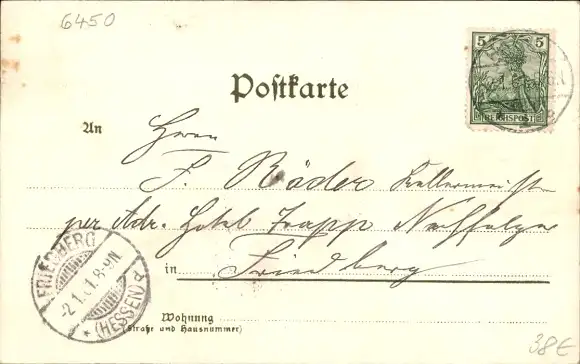 6450
5 5
REICHSPOST
Postkarte
An Herrn
F. Röder Kellermeister
per Adr. Hotel Trapp Nachfolger
in Friedberg
FRIEDBERG
-2.1.01.8-9N.
* (HESSEN) d
Wohnung
(Straße und Hausnummer)
38€